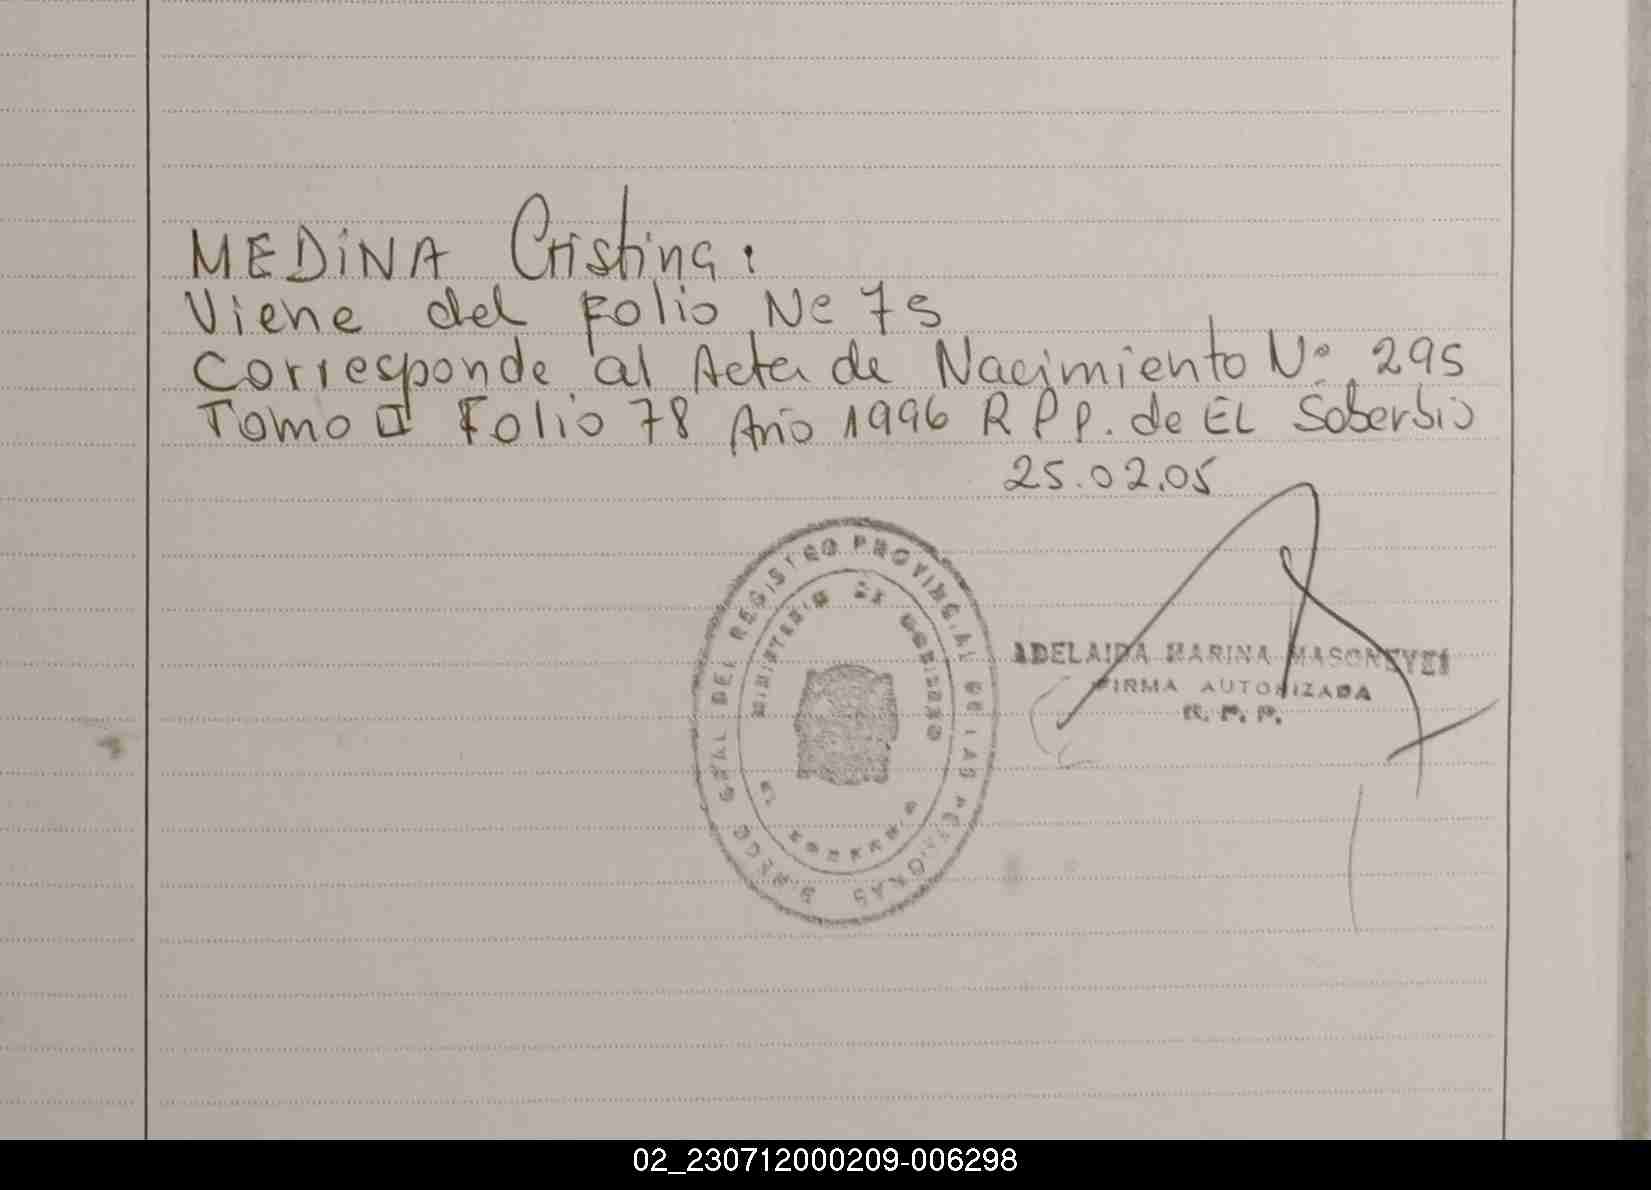 MEDINA Cristina:
Viene del Folio Nº 75
Corresponde al Acta de Nacimiento Nº 295
Tomo II Folio 78 Año 1996 R P p. de EL Soberbio
25.02.05
GRAL DEL REGISTRO PROVINCIAL DE LAS PERSONAS
MINISTERIO DE GOBIERNO
ADELAIDA MARINA
FIRMA AUTORIZADA
R. P. P.
02_230712000209-006298